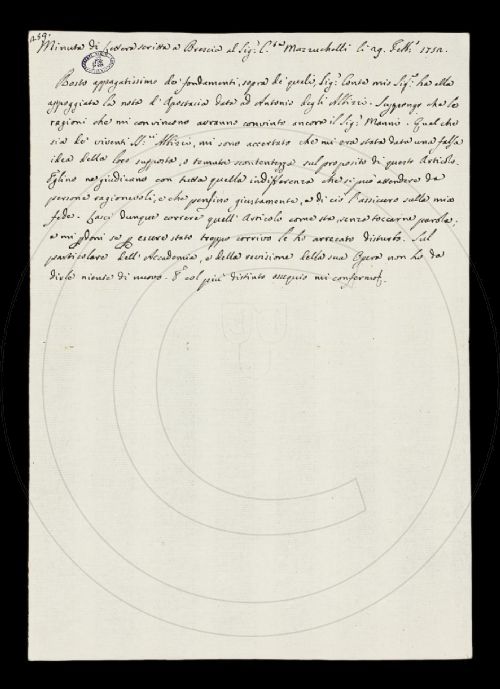 259.
Minuta di Lettera scritta a Brescia al Sig.r C.te Mazzuchelli li 29. Febb.o 1752.
Resto appagatissimo dei fondamenti, sopra de' quali, Sig.r Conte mio Sig.re ha ella
appoggiata la nota d'Apostacia data ad Antonio degli Albizi. Suppongo che le
ragioni che mi convincono avranno convinto ancora il Sig.r Manni. Qual che
sia de' viventi SS.ri Albizi, mi sono accertato che mi era stata data una falsa
idea della loro supposta, o temuta scontentezza sul proposito di questo Articolo.
Eglino ne giudicano con tutta quella indifferenza che si può attendere da
persone ragionevoli, e che pensino giustamente, e di ciò l'assicuro sulla mia
fede. Lasci dunque correre quell'Articolo come sta, senza toccarne parola,
e mi perdoni se per essere stato troppo corrivo le ho arrecato disturbo. Sul
particolare dell'Accademia, e della revisione della sua Opera non ho da
dirle niente di nuovo. E col più distinto ossequio mi confermo